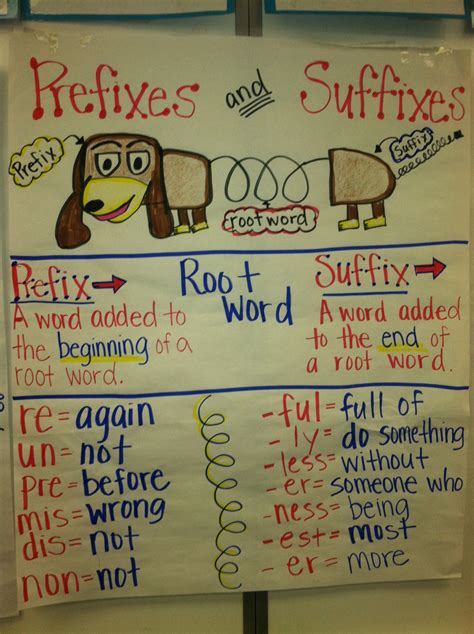 Prefixes and Suffixes
Prefix
Suffix
root word
Prefix →
A word added to
the beginning of a
root word.
Root
Word
Suffix →
A word added
to the end of
a root word.
re=again
un=not
pre=before
mis=wrong
dis=not
non=not
-ful=full of
-ly=do something
-less=without
-er=someone who
-ness=being
-est=most
-er=more